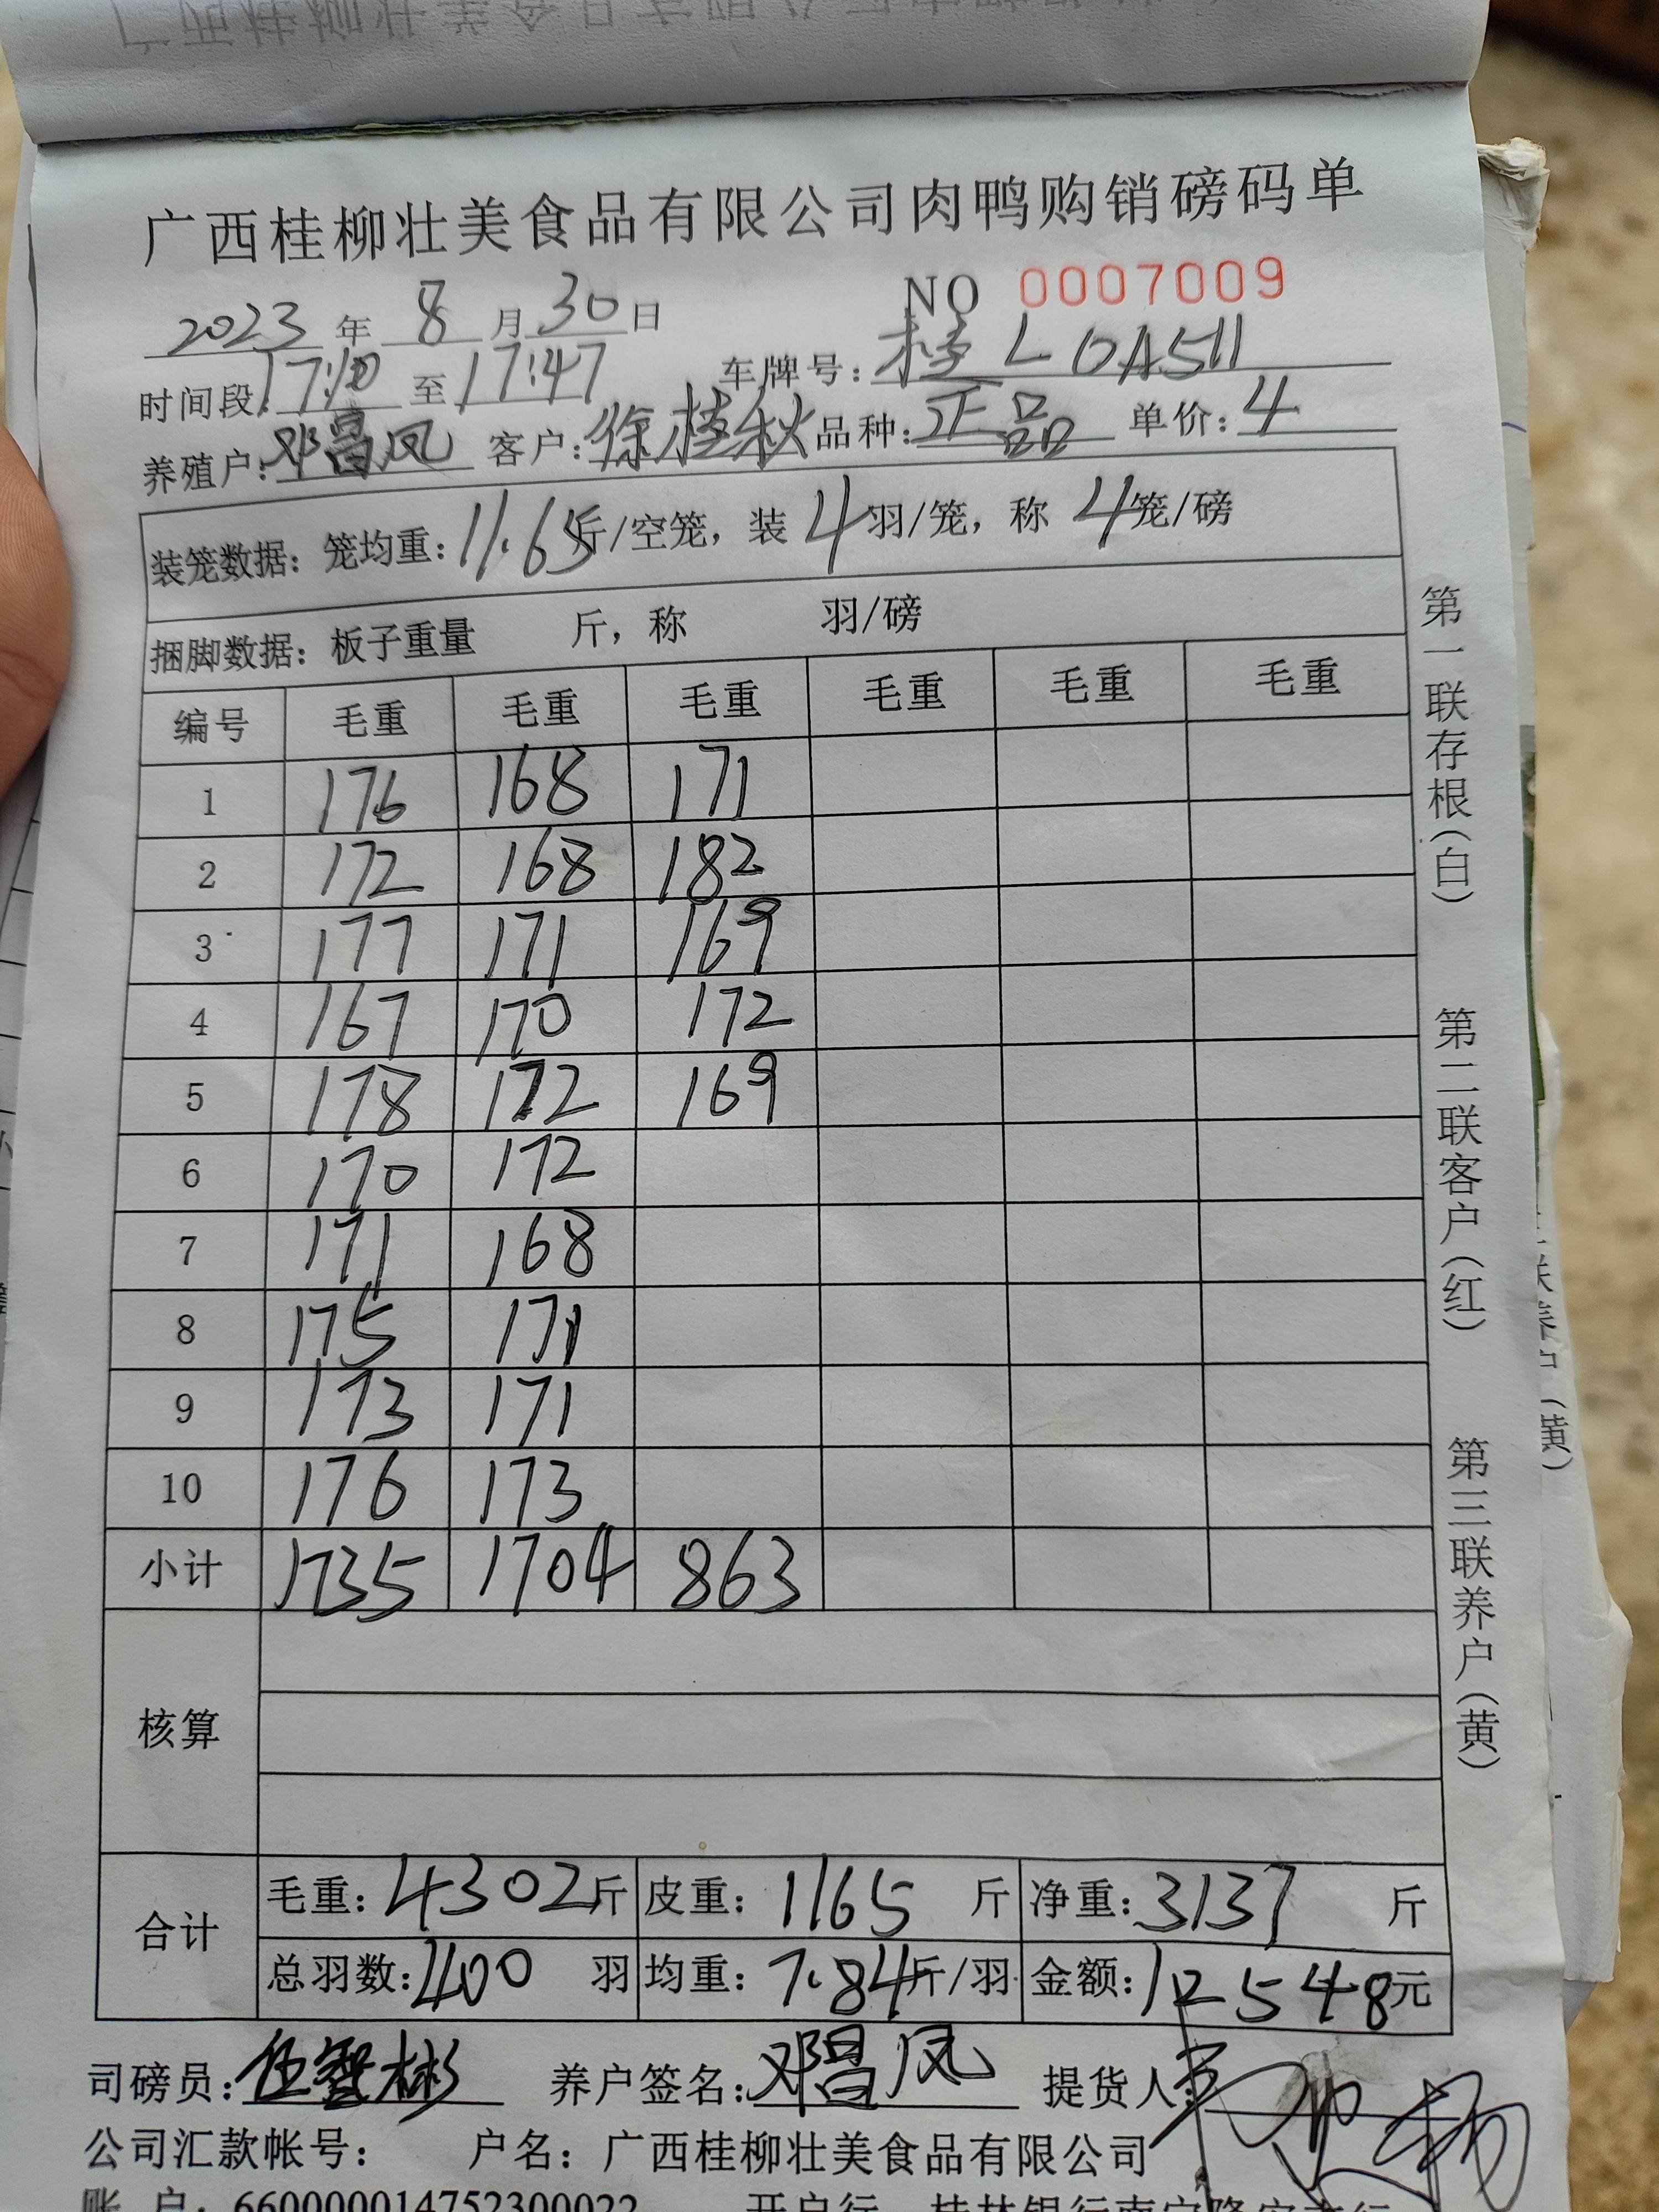 广西桂柳壮美食品有限公司肉鸭购销磅码单
NO 0007009
2023 年 8 月 30 日
时间段: 17:10 至 17:47 车牌号: 桂L0A511
养殖户: 邓昌凤 客户: 徐桂秋 品种: 正品 单价: 4
装笼数据: 笼均重: 11.65 斤/空笼, 装 4 羽/笼, 称 4 笼/磅
捆脚数据: 板子重量 斤, 称 羽/磅
编号 毛重 毛重 毛重 毛重 毛重 毛重
1 176 168 171
2 172 168 182
3 177 171 169
4 167 170 172
5 178 172 169
6 170 172
7 171 168
8 175 171
9 173 171
10 176 173
小计 1735 1704 863
核算
合计 毛重: 4302 斤 皮重: 1165 斤 净重: 3137 斤
总羽数: 400 羽 均重: 7.84 斤/羽 金额: 12548 元
司磅员: 伍智彬 养户签名: 邓昌凤 提货人:
公司汇款帐号: 户名: 广西桂柳壮美食品有限公司
账 户: 660000014752300022 开户行
第一联存根(白)
第二联客户(红)
第三联养户(黄)